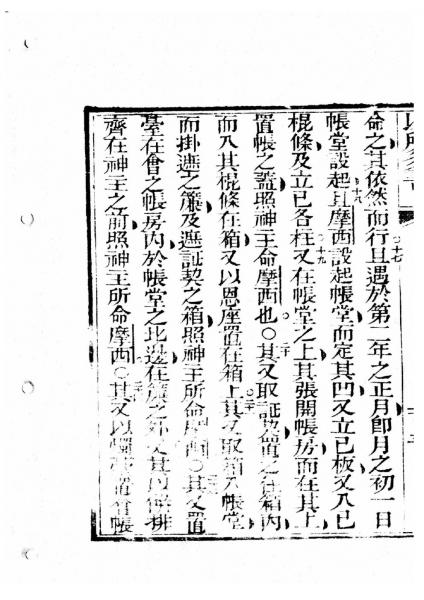 命之其依然而行且遇於第二年之正月即月之初一日
帳堂設起且摩西設起帳堂而定其凹又立已板又入已
棍條及立已各柱又在帳堂之上其張開帳房而在其上
置帳之蓋照神主命摩西也○其又取証契置之在箱內
而入其棍條在箱又以恩座置在箱上其又取箱入帳堂
而掛遮之簾及遮証契之箱照神主所命摩西○其又置
臺在會之帳房內於帳堂之北邊在簾之外又其以餅排
齊在神主之前照神主所命摩西○其又以燭臺置會帳